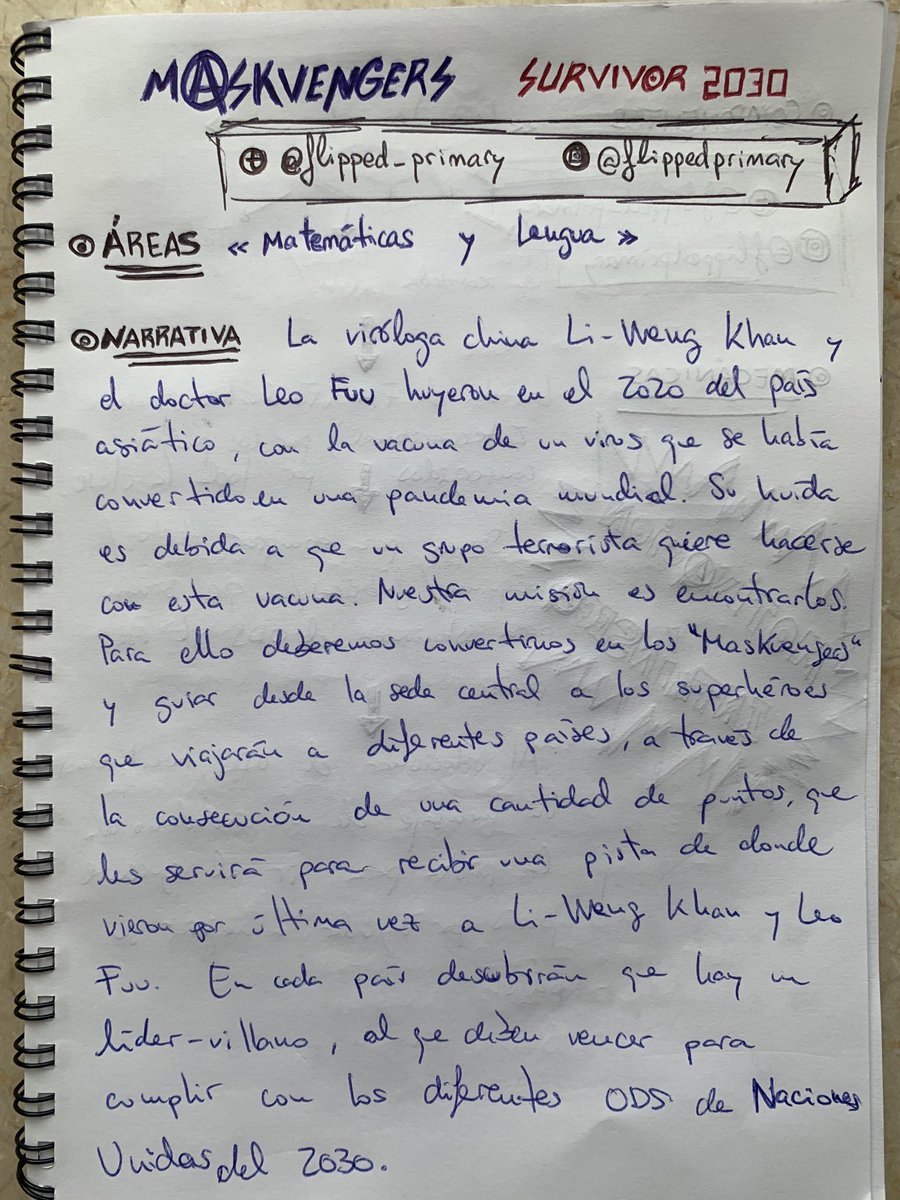 MASKVENGERS SURVIVOR 2030
@flipped_primary @flippedprimary
ÁREAS « Matemáticas y Lengua »
NARRATIVA La viróloga china Li-Weng Khan y
el doctor Leo Fuu huyeron en el 2020 del país
asiático, con la vacuna de un virus que se había
convertido en una pandemia mundial. Su huida
es debida a que un grupo terrorista quiere hacerse
con esta vacuna. Nuestra misión es encontrarlos.
Para ello deberemos convertirnos en los "Maskvengers"
y guiar desde la sede central a los superhéroes
que viajarán a diferentes países, a través de
la consecución de una cantidad de puntos, que
les servirá para recibir una pista de donde
vieron por última vez a Li-Weng Khan y Leo
Fuu. En cada país descubrirán que hay un
líder-villano, al que deben vencer para
cumplir con los diferentes ODS de Naciones
Unidas del 2030.